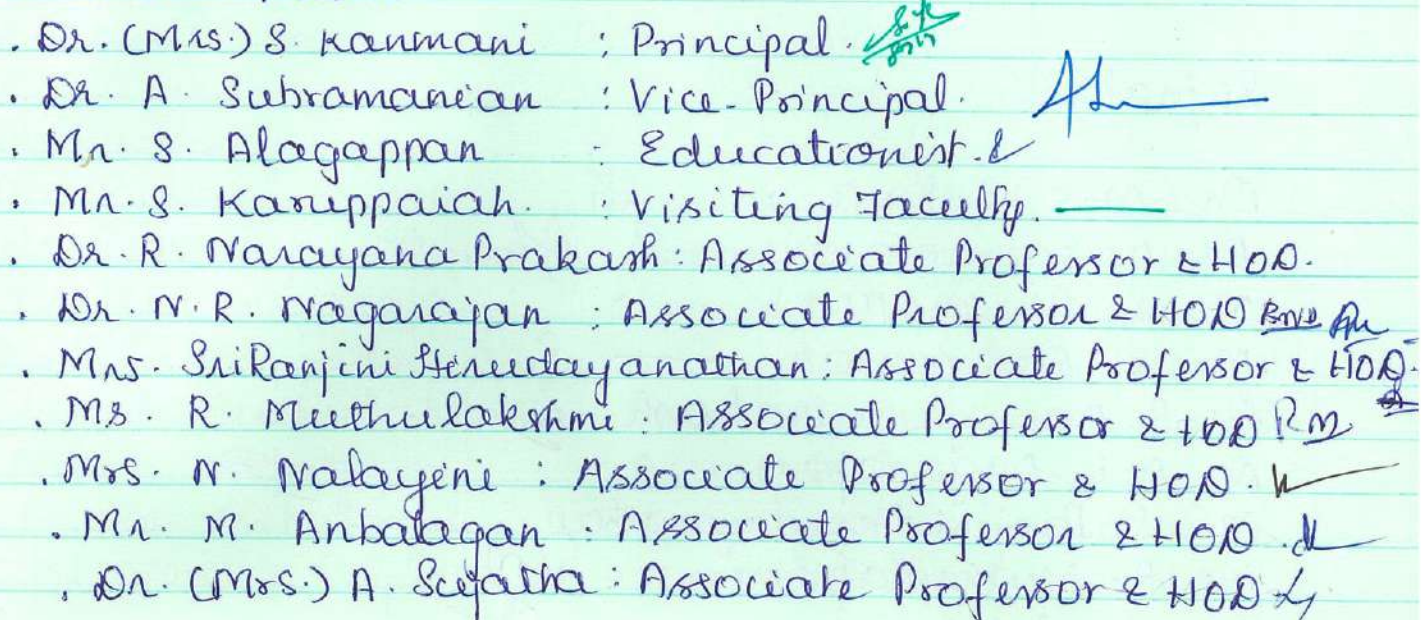 . Dr. (Mrs.) S. Kanmani : Principal.
. Dr. A. Subramanian : Vice-Principal.
. Mr. S. Alagappan : Educationist.
. Mr. S. Karuppaiah. : Visiting Faculty.
. Dr. R. Narayana Prakash : Associate Professor & HOD.
. Dr. N. R. Nagarajan : Associate Professor & HOD
. Mrs. SriRanjini Hirudayanathan : Associate Professor & HOD.
. Ms. R. Muthulakshmi : Associate Professor & HOD RM
. Mrs. N. Nalayini : Associate Professor & HOD.
. Mr. M. Anbalagan : Associate Professor & HOD.
. Dr. (Mrs.) A. Sujatha : Associate Professor & HOD